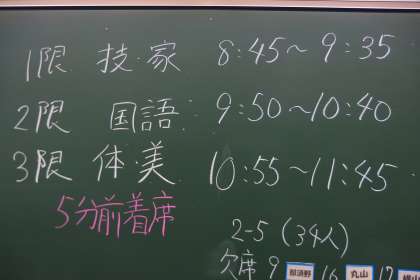 1限 技・家 8:45〜9:35
2限 国語 9:50〜10:40
3限 体・美 10:55〜11:45
5分前着席
2-5 (34人)
欠席 9 那須野 16 丸山 17